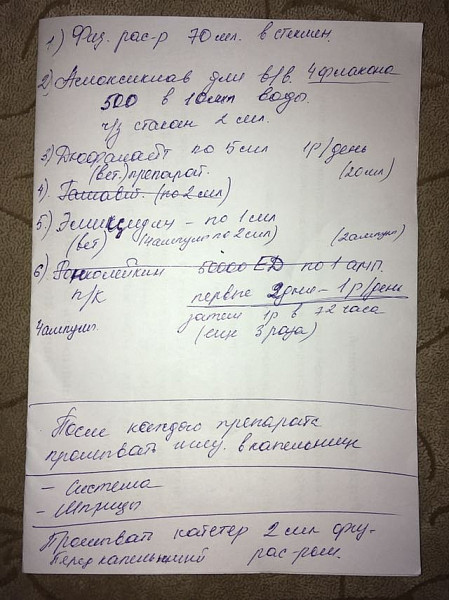 1) Физ. рас-р 70 мл. в стеклян.
2) Амоксиклав для в/в. 4 флакона
500 в 10 мл воды.
ч/з стакан 2 мл.
3) Дюфалайт по 5 мл 1 р/день
(вет.) препарат. (20 мл)
4) Гамавит. (по 2 мл)
5.) Эмицидин - по 1 мл
(вет) (4 ампулы по 2 мл) (2 ампул)
6) Ронколейкин 50000 ЕД по 1 амп.
п/к первые 2 дня - 1 р/день
затем 1р в 72 часа
4 ампулы. (еще 3 раза)
После каждого препарата
промывать иглу. в капельнице
- Система
- Шприцы
Промывать катетер 2 мл физ-
перед капельницей рас-ром.